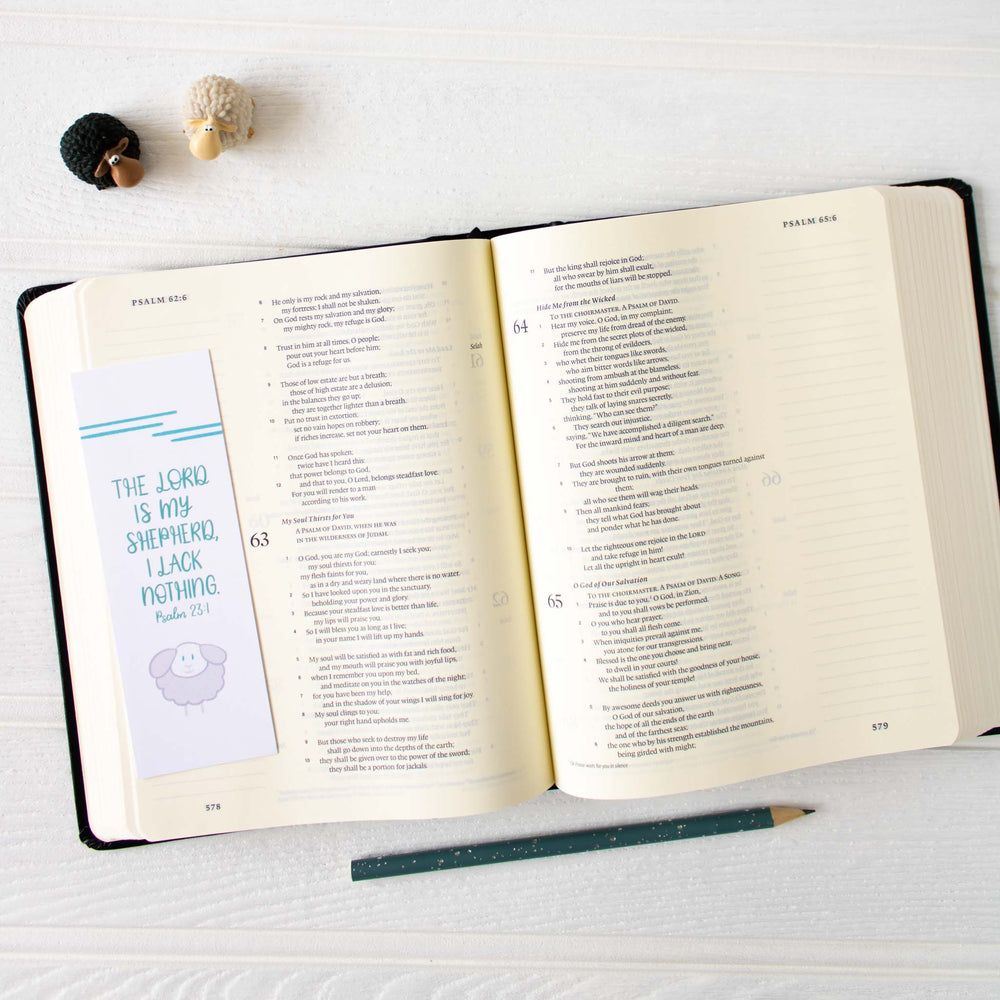 PSALM 62:6
THE LORD
IS MY
SHEPHERD,
I LACK
NOTHING.
Psalm 23:1
578
6 He only is my rock and my salvation,
my fortress; I shall not be shaken.
7 On God rests my salvation and my glory;
my mighty rock, my refuge is God.
8 Trust in him at all times, O people;
pour out your heart before him;
God is a refuge for us. Selah
9 Those of low estate are but a breath;
those of high estate are a delusion;
in the balances they go up;
they are together lighter than a breath.
10 Put no trust in extortion;
set no vain hopes on robbery;
if riches increase, set not your heart on them.
11 Once God has spoken;
twice have I heard this:
that power belongs to God,
12 and that to you, O Lord, belongs steadfast love.
For you will render to a man
according to his work.
My Soul Thirsts for You
63 A PSALM OF DAVID, WHEN HE WAS
IN THE WILDERNESS OF JUDAH.
1 O God, you are my God; earnestly I seek you;
my soul thirsts for you;
my flesh faints for you,
as in a dry and weary land where there is no water.
2 So I have looked upon you in the sanctuary,
beholding your power and glory.
3 Because your steadfast love is better than life,
my lips will praise you.
4 So I will bless you as long as I live;
in your name I will lift up my hands.
5 My soul will be satisfied as with fat and rich food,
and my mouth will praise you with joyful lips,
6 when I remember you upon my bed,
and meditate on you in the watches of the night;
7 for you have been my help,
and in the shadow of your wings I will sing for joy.
8 My soul clings to you;
your right hand upholds me.
9 But those who seek to destroy my life
shall go down into the depths of the earth;
10 they shall be given over to the power of the sword;
they shall be a portion for jackals.
PSALM 65:6
11 But the king shall rejoice in God;
all who swear by him shall exult,
for the mouths of liars will be stopped.
Hide Me from the Wicked
64 TO THE CHOIRMASTER. A PSALM OF DAVID.
1 Hear my voice, O God, in my complaint;
preserve my life from dread of the enemy.
2 Hide me from the secret plots of the wicked,
from the throng of evildoers,
3 who whet their tongues like swords,
who aim bitter words like arrows,
4 shooting from ambush at the blameless,
shooting at him suddenly and without fear.
5 They hold fast to their evil purpose;
they talk of laying snares secretly,
thinking, "Who can see them?"
6 They search out injustice,
saying, "We have accomplished a diligent search."
For the inward mind and heart of a man are deep.
7 But God shoots his arrow at them;
they are wounded suddenly.
8 They are brought to ruin, with their own tongues turned against
them;
all who see them will wag their heads.
9 Then all mankind fears;
they tell what God has brought about
and ponder what he has done.
10 Let the righteous one rejoice in the LORD
and take refuge in him!
Let all the upright in heart exult!
O God of Our Salvation
65 TO THE CHOIRMASTER. A PSALM OF DAVID. A SONG.
1 Praise is due to you, O God, in Zion,
and to you shall vows be performed.
2 O you who hear prayer,
to you shall all flesh come.
3 When iniquities prevail against me,
you atone for our transgressions.
4 Blessed is the one you choose and bring near,
to dwell in your courts!
We shall be satisfied with the goodness of your house,
the holiness of your temple!
5 By awesome deeds you answer us with righteousness,
O God of our salvation,
the hope of all the ends of the earth
and of the farthest seas;
6 the one who by his strength established the mountains,
being girded with might;
579